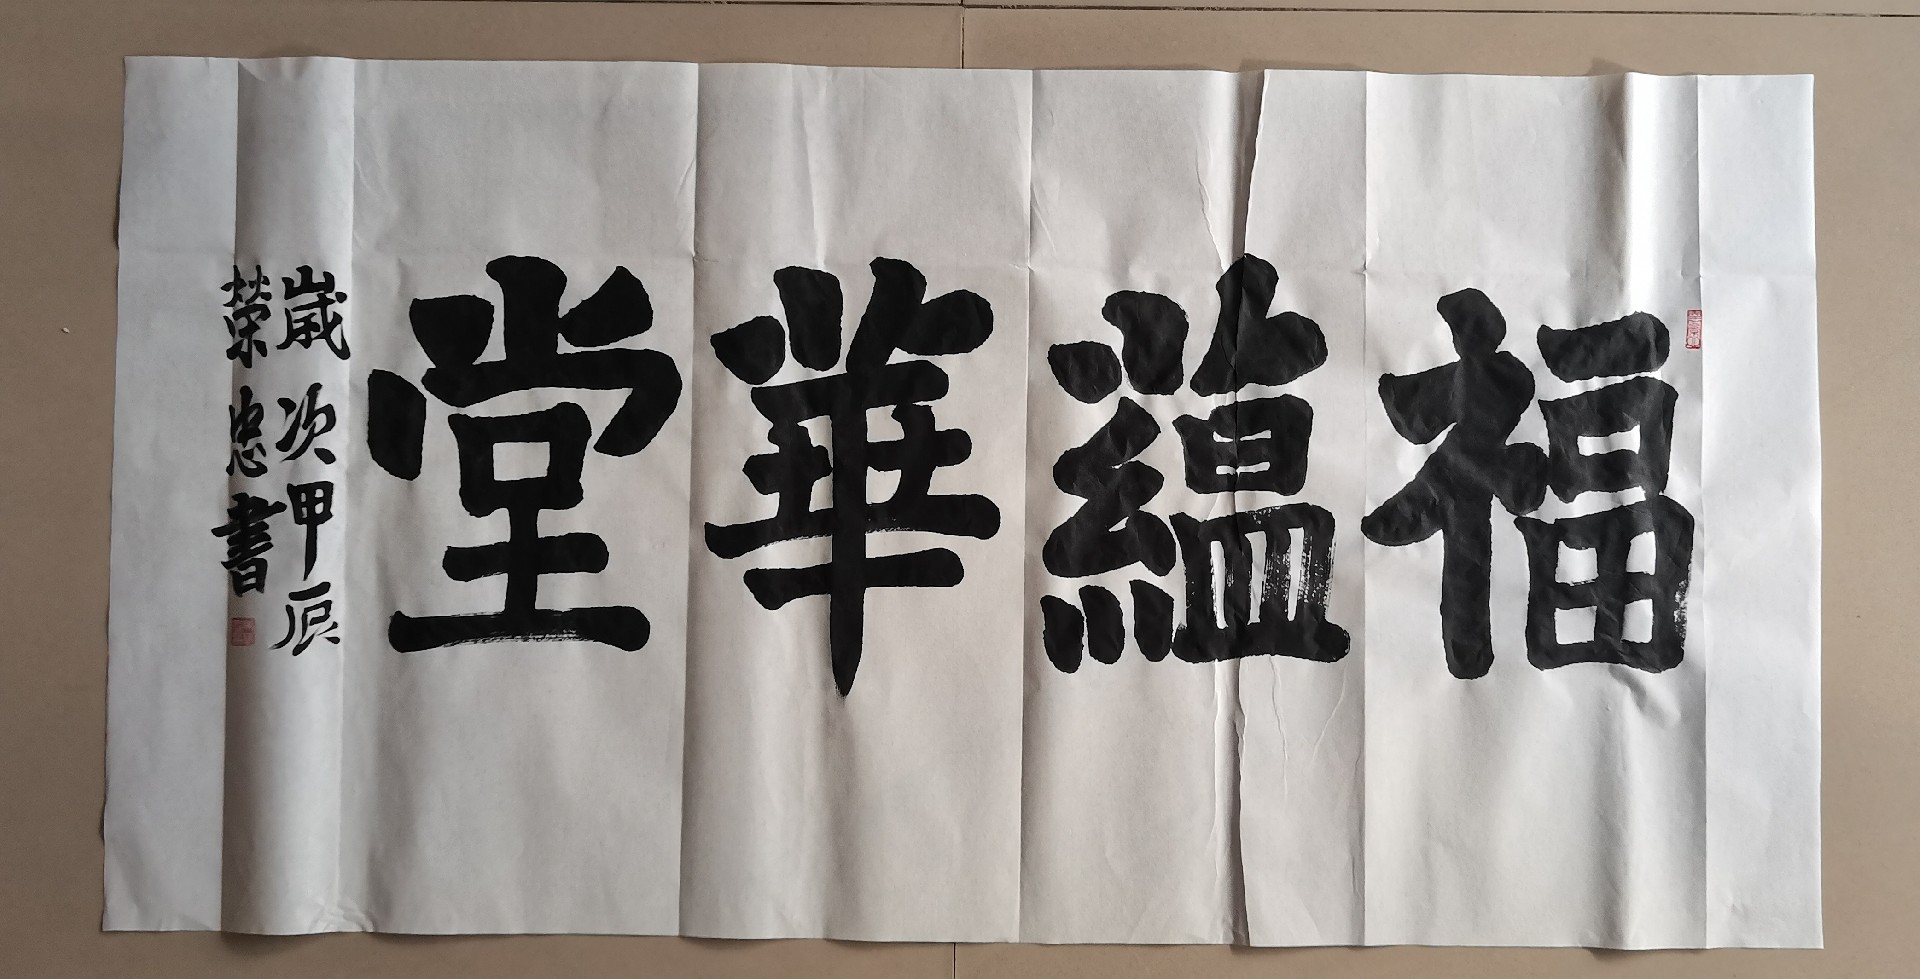 福蘊華堂
歲次甲辰
榮忠書